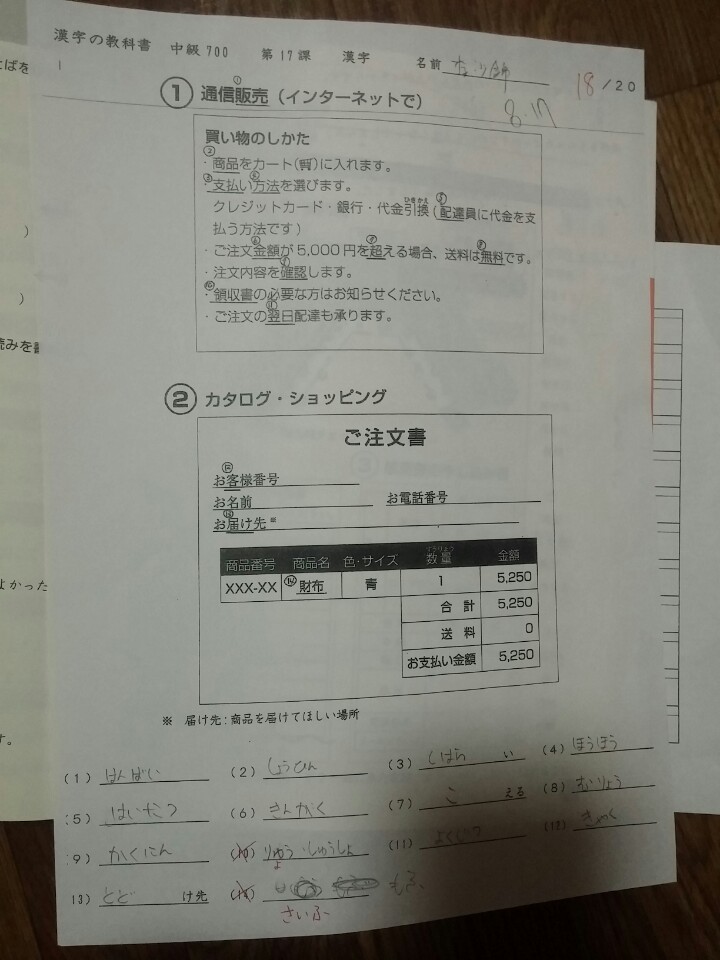 漢字の教科書 中級700 第17課 漢字 名前
18/20
1
① 通信販売(インターネットで)
買い物のしかた
・商品をカート( )に入れます。
・支払い方法を選びます。
クレジットカード・銀行・代金引換(配達員に代金を支
払う方法です)
・ご注文金額が5,000円を超える場合、送料は無料です。
・注文内容を確認します。
・領収書の必要な方はお知らせください。
・ご注文の翌日配達も承ります。
② カタログ・ショッピング
ご注文書
お客様番号
お名前 お電話番号
お届け先※
商品番号 商品名 色・サイズ 数量 金額
XXX-XX 財布 青 1 5,250
合計 5,250
送料 0
お支払い金額 5,250
※ 届け先:商品を届けてほしい場所
(1) はんばい (2) しょうひん (3) しはら い (4) ほうほう
(5) はいたつ (6) きんがく (7) こ える (8) むりょう
(9) かくにん (10) りゅうしゅうしょ (11) (12) きゃく
(13) とど け先 (14)
さいふ